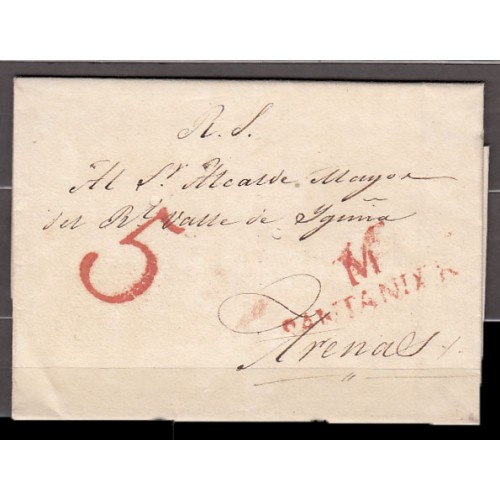 R. S.
Al Sr. Alcalde Mayor
del Rl. Valle de Iguña
5
M
Arenas